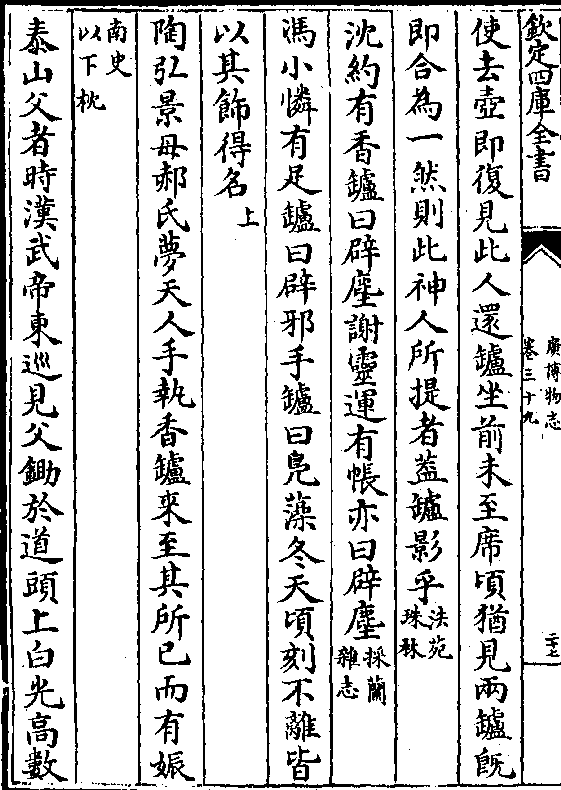 欽定四庫全書
廣博物志
卷三十九
二十七
使去壺即復見此人還鑪坐前未至席頃猶見兩鑪既
即合為一然則此神人所提者葢鑪影乎法苑
珠林
沈約有香鑪曰辟塵謝靈運有帳亦曰辟塵採蘭
雜志
馮小憐有足鑪曰辟邪手鑪曰鳧藻冬天頃刻不離皆
以其飾得名上
陶弘景母郝氏夢天人手執香鑪來至其所已而有娠
南史
以下枕
泰山父者時漢武帝東巡見父鋤於道頭上白光高數